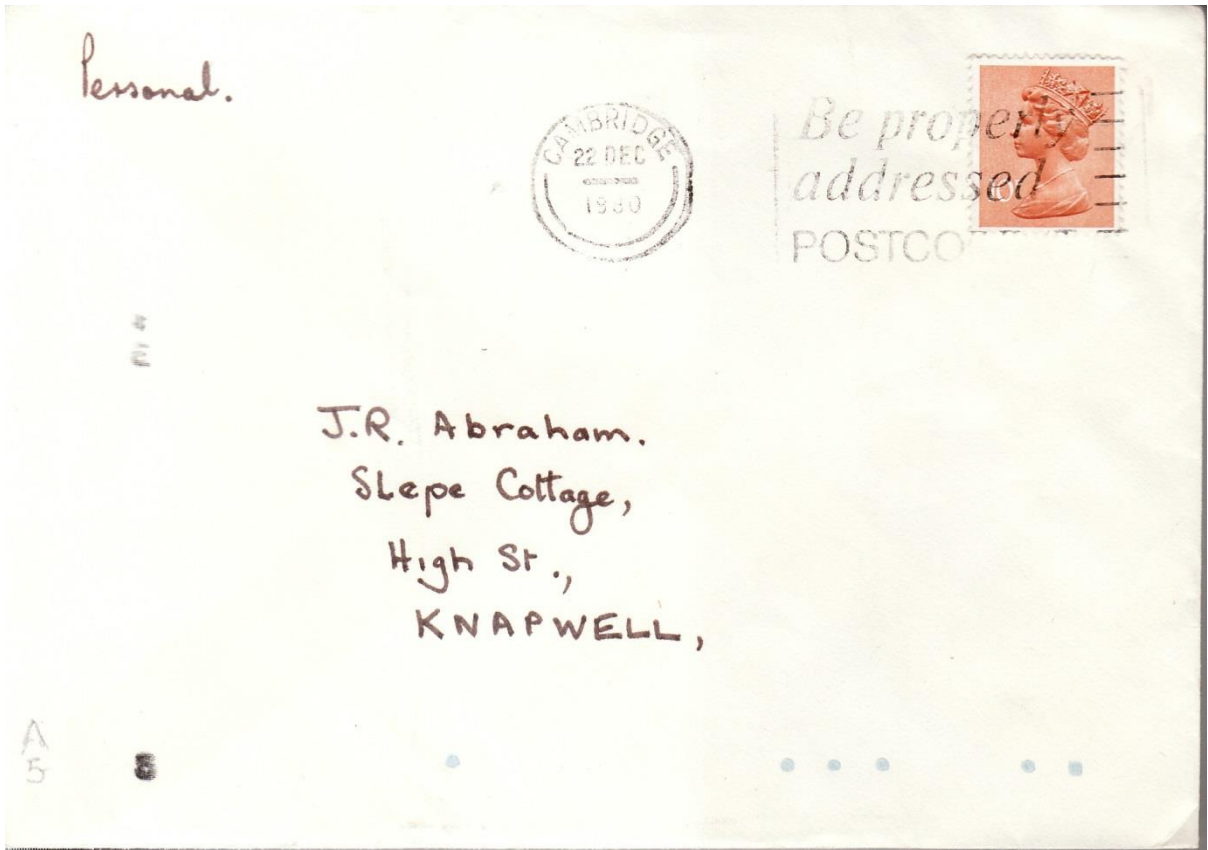 Personal.
CAMBRIDGE
22 DEC
1980
Be properly
addressed
J.R. Abraham.
Slepe Cottage,
High St.,
KNAPWELL,
A
5